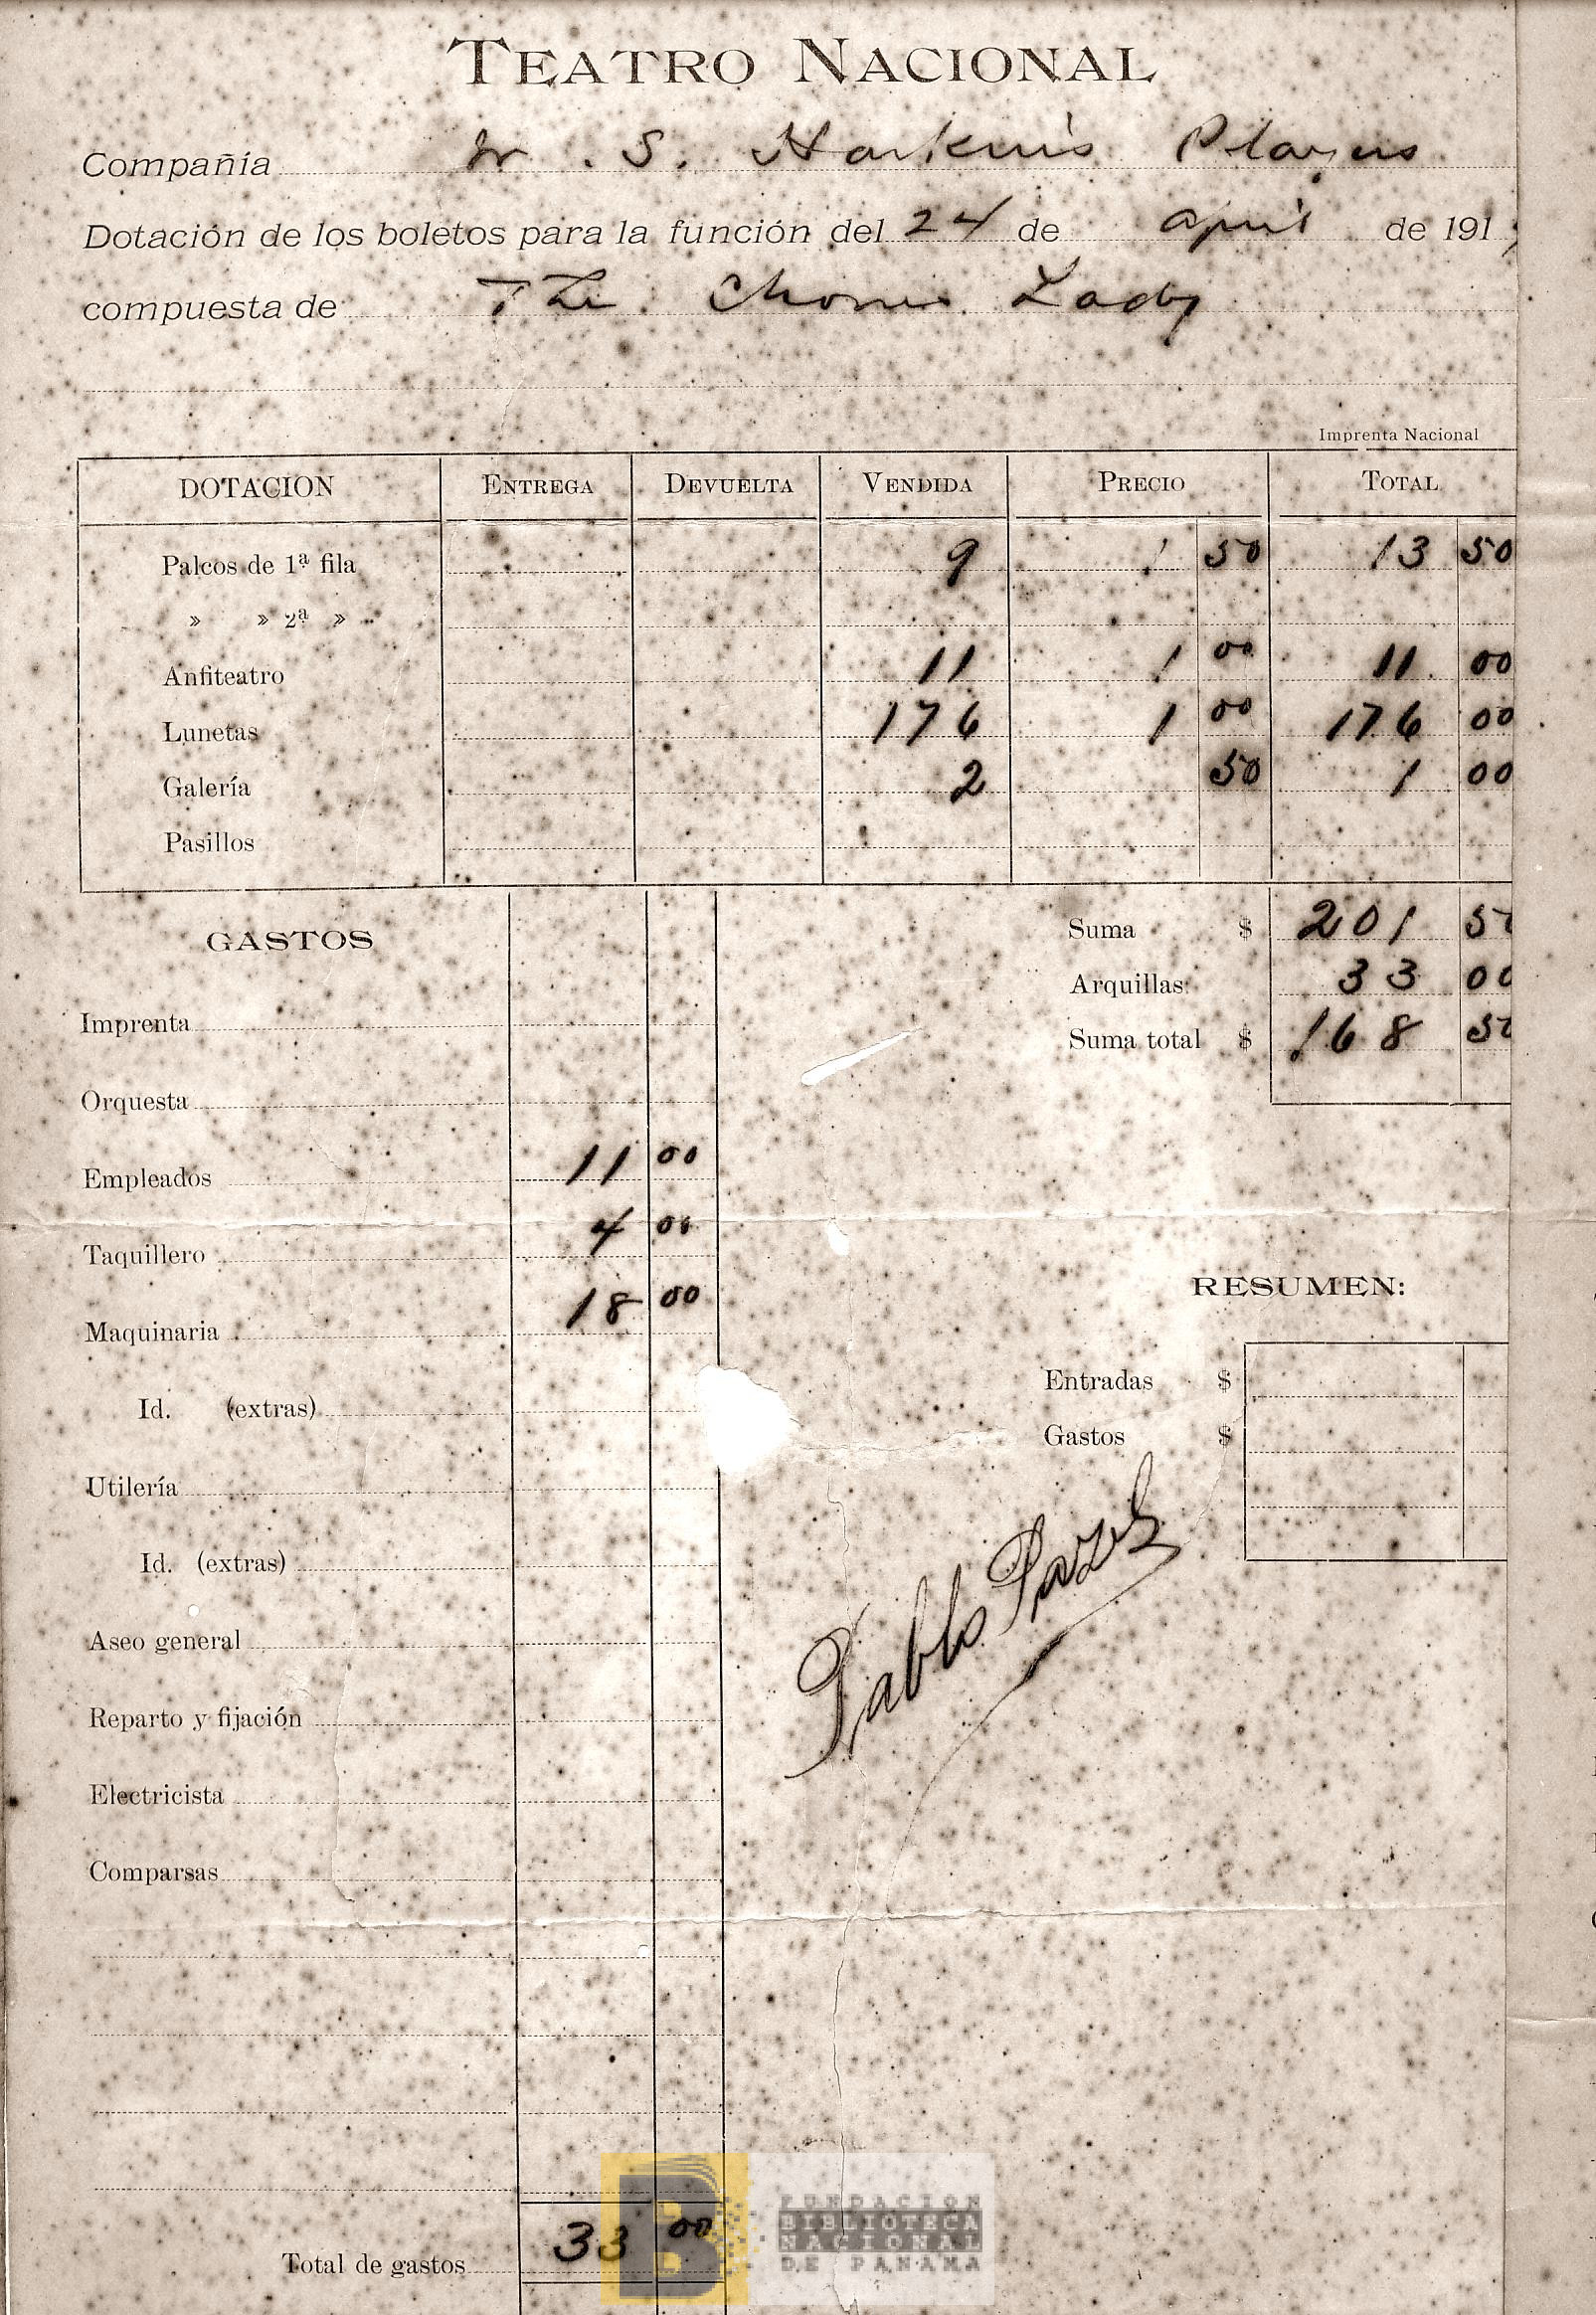 TEATRO NACIONAL
Compañía W. S. Harkin's Players
Dotación de los boletos para la función del 24 de april de 191
compuesta de The Chorus Lady
Imprenta Nacional
DOTACION ENTREGA DEVUELTA VENDIDA PRECIO TOTAL
Palcos de 1ª fila 9 1 50 13 50
» » 2ª »
Anfiteatro 11 1 00 11 00
Lunetas 176 1 00 176 00
Galería 2 50 1 00
Pasillos
Suma $ 201 50
Arquillas 33 00
Suma total $ 168 50
GASTOS
Imprenta
Orquesta
Empleados 11 00
Taquillero 4 00
Maquinaria 18 00
Id. (extras)
Utilería
Id. (extras)
Aseo general
Reparto y fijación
Electricista
Comparsas
Total de gastos 33 00
RESUMEN:
Entradas $
Gastos $
Pablo
B
FUNDACION
BIBLIOTECA
NACIONAL
DE PANAMA